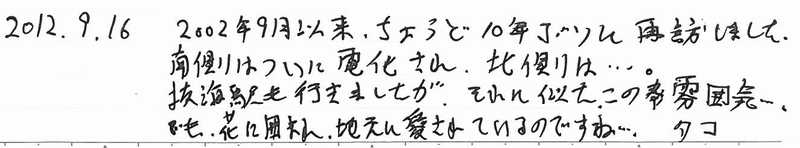 2012.9.16 2002年9月以来、ちょうど10年ブリに再訪しました。
南側はついに電化され、北側は…。
抜海駅も行きましたが、それに似たこの雰囲気…、
でも、花に囲まれ、地元に愛されているのですね…。 タコ